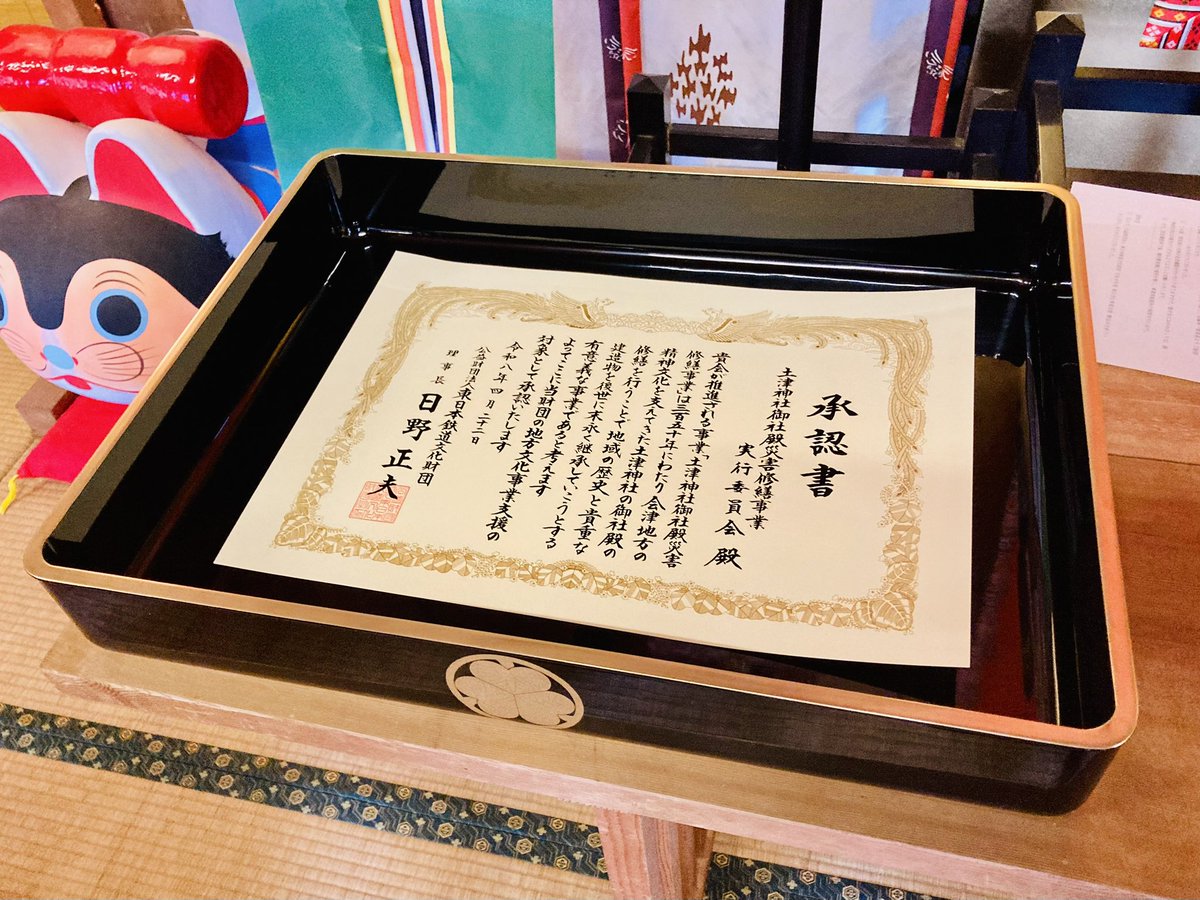 承認書
土津神社御社殿災害修繕事業
実行委員会 殿
貴会が推進される事業、土津神社御社殿災害
修繕事業は三百五十年にわたり会津地方の
精神文化を支えてきた土津神社の御社殿の
修繕を行うことで地域の歴史と貴重な
建造物を後世に末永く継承していこうとする
有意義な事業であると考えます
よってここに当財団の地方文化事業支援の
対象として承認いたします
令和八年四月二十二日
公益財団法人東日本鉄道文化財団
理事長 日野正夫